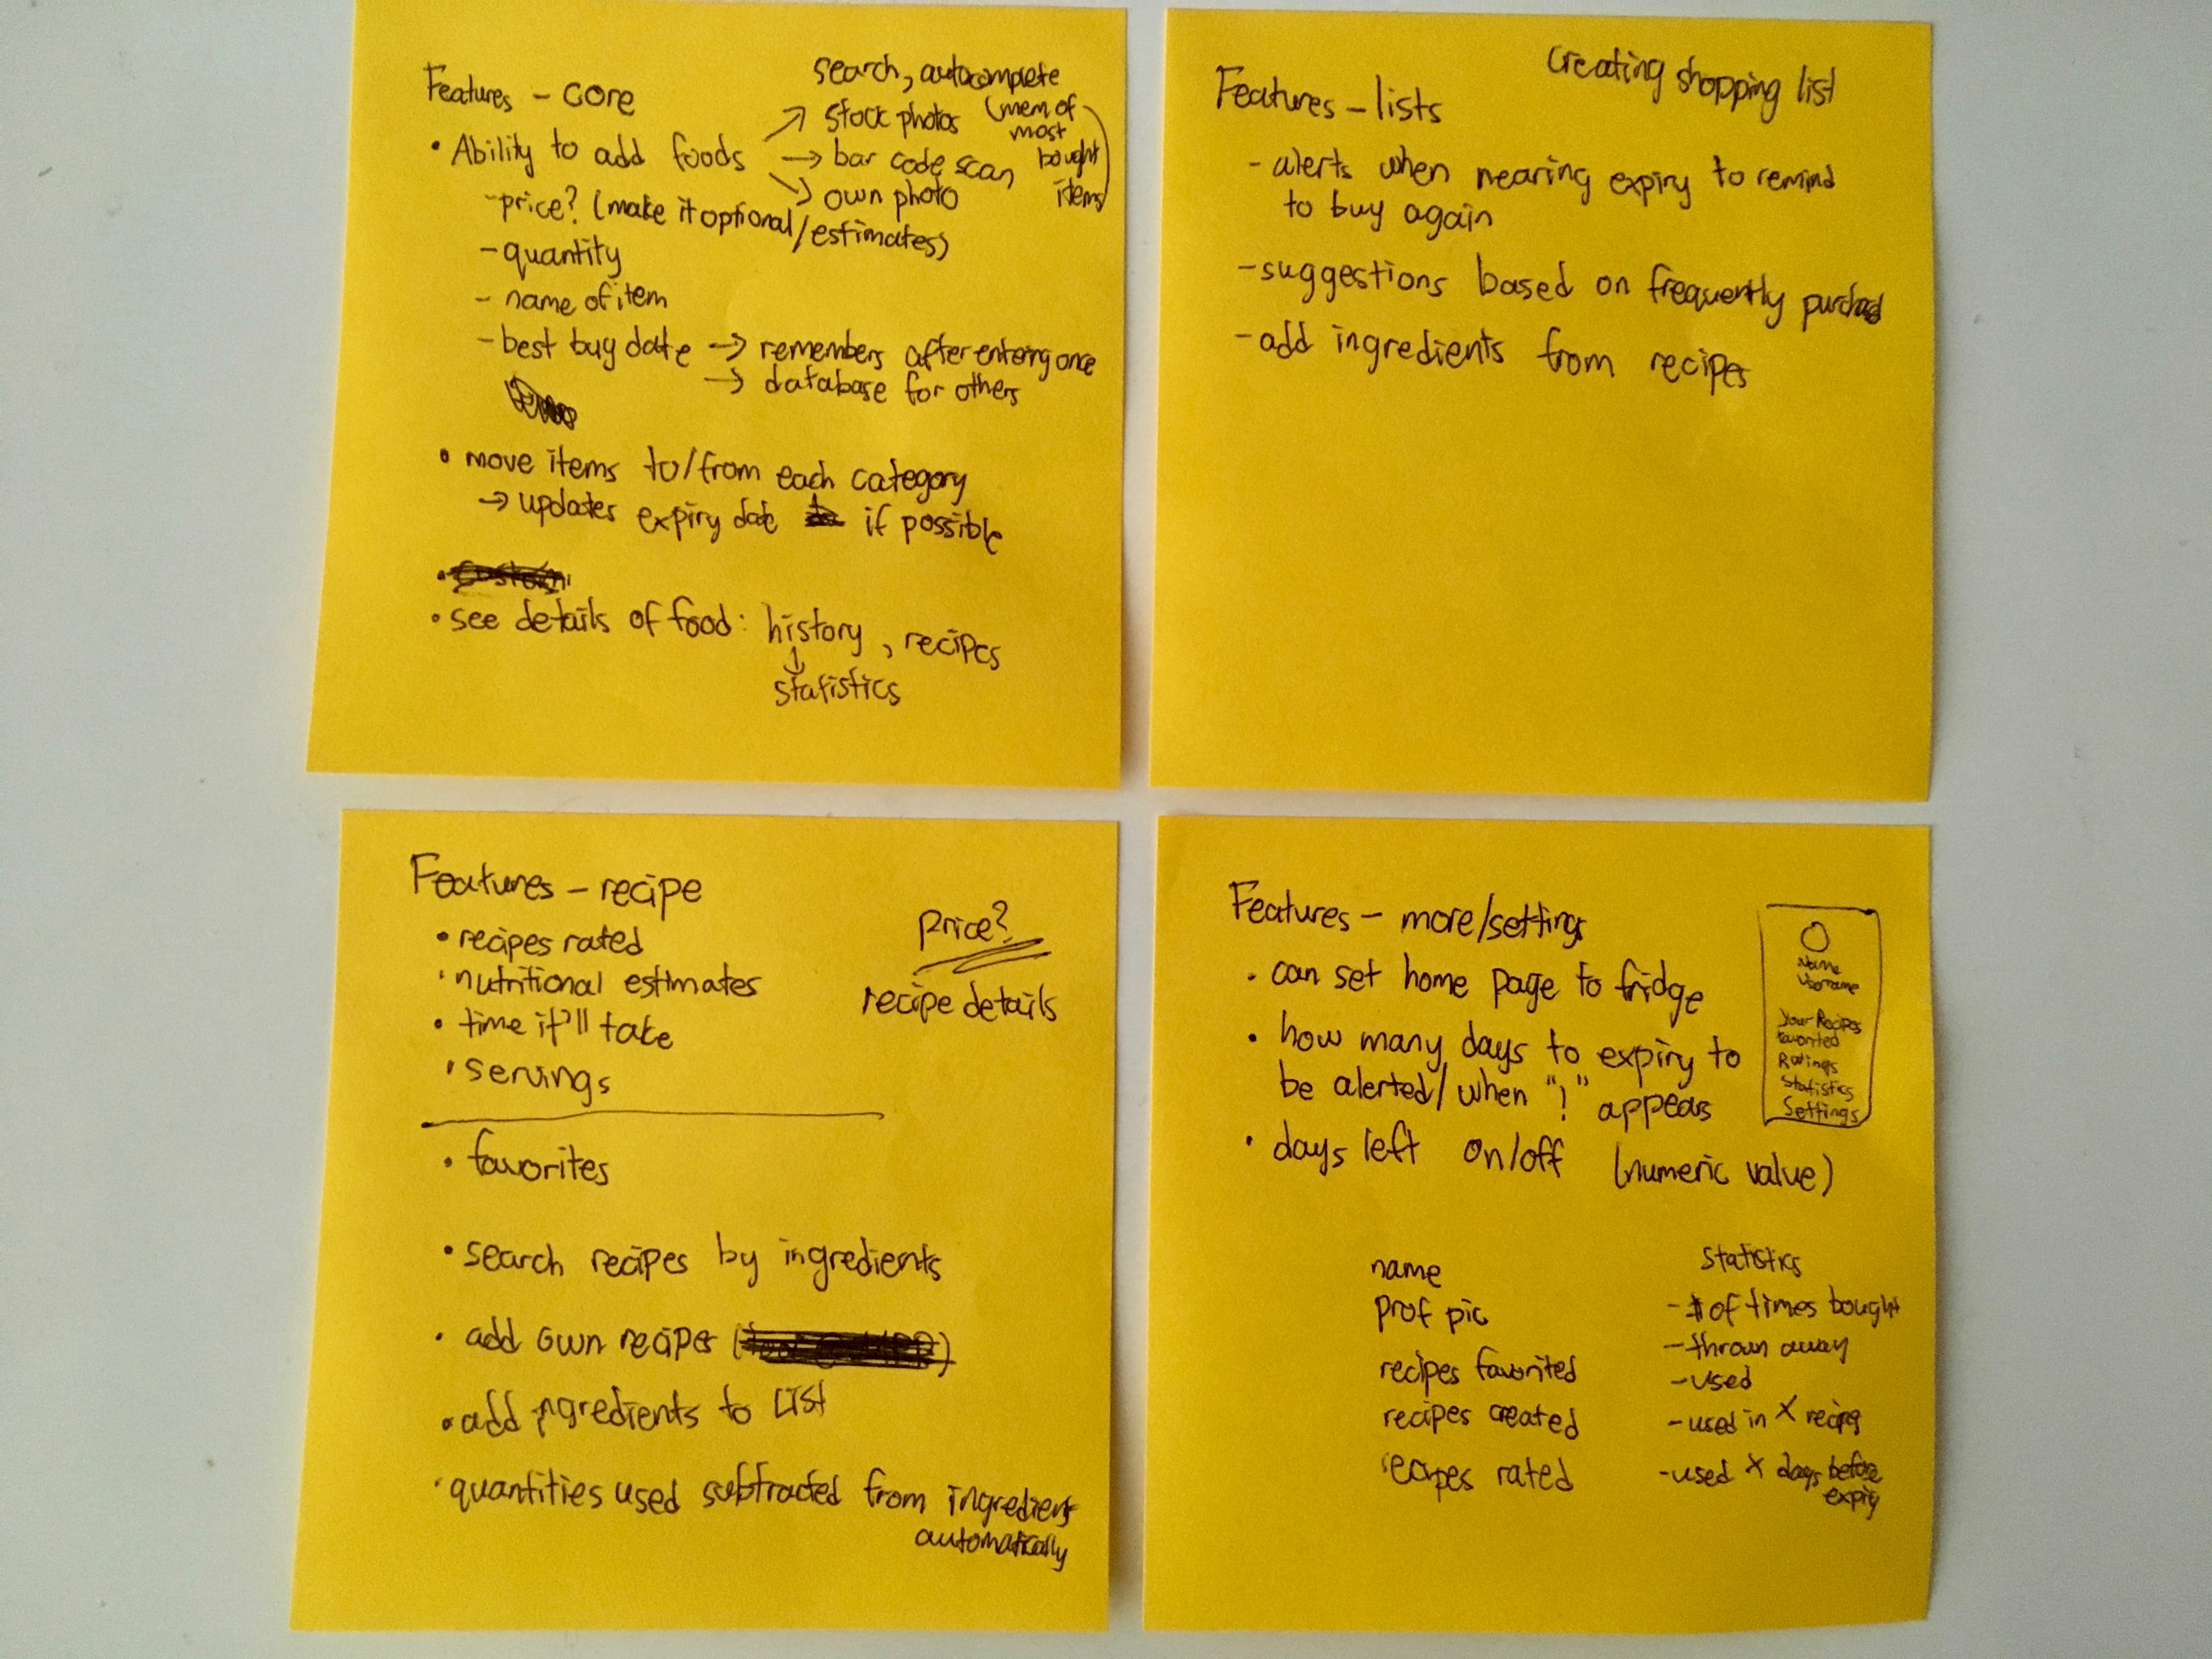 Features - core
search, autocomplete
stock photos (mem of most bought items)
• Ability to add foods → bar code scan
own photo
- price? (make it optional/estimates)
- quantity
- name of item
- best buy date → remembers after entering once
→ database for others
• move items to/from each category
→ updates expiry date if possible
• see details of food: history, recipes
↓
statistics
Features - lists
Creating shopping list
- alerts when nearing expiry to remind
to buy again
- suggestions based on frequently
- add ingredients from recipes
Features - recipe
• recipes rated
• nutritional estimates
• time it'll take
• servings
Price?
recipe details
• favorites
• search recipes by ingredients
• add own recipes
• add ingredients to list
• quantities used subtracted from ingredient
automatically
Features - more/setting
• can set home page to fridge
• how many days to expiry to
be alerted/when "!" appears
• days left on/off (numeric value)
Name
Username
Your Recipes
Favorited
Ratings
Statistics
Settings
name
prof pic
recipes favorited
recipes created
recipes rated
Statistics
- # of times bought
- thrown away
- used
- used in X recipes
- used X days before
expiry